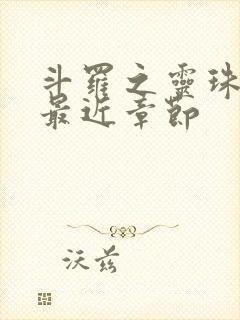 斗羅之靈珠
最近章節
沃兹